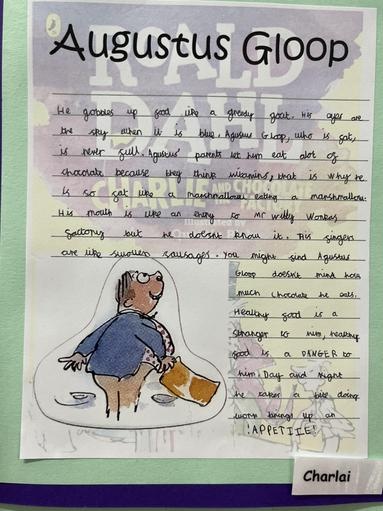 Augustus Gloop
ROALD
DAHL
He gobbles up food like a greedy goat. His eyes are
the sky when it is blue. Agustus Gloop, who is fat,
is never full. Agustus' parents let him eat alot of
chocolate because they think vitamins, that is why he
is so fat like a marshmallow, eating a marshmallow.
CHARLIE AND THE CHOCOLATE
His mouth is like an entry to Mr Willy Wonkas
factory but he doesnt know it. His fingers
are like swollen sausages. You might find Agustus
Gloop doesn't mind how
much chocolate he eats.
Healthy food is a
stranger to him, healthy
food is a DANGER to
him. Day and Night
he takes a bite doing
work brings up an
!APPETITE!
Charlai